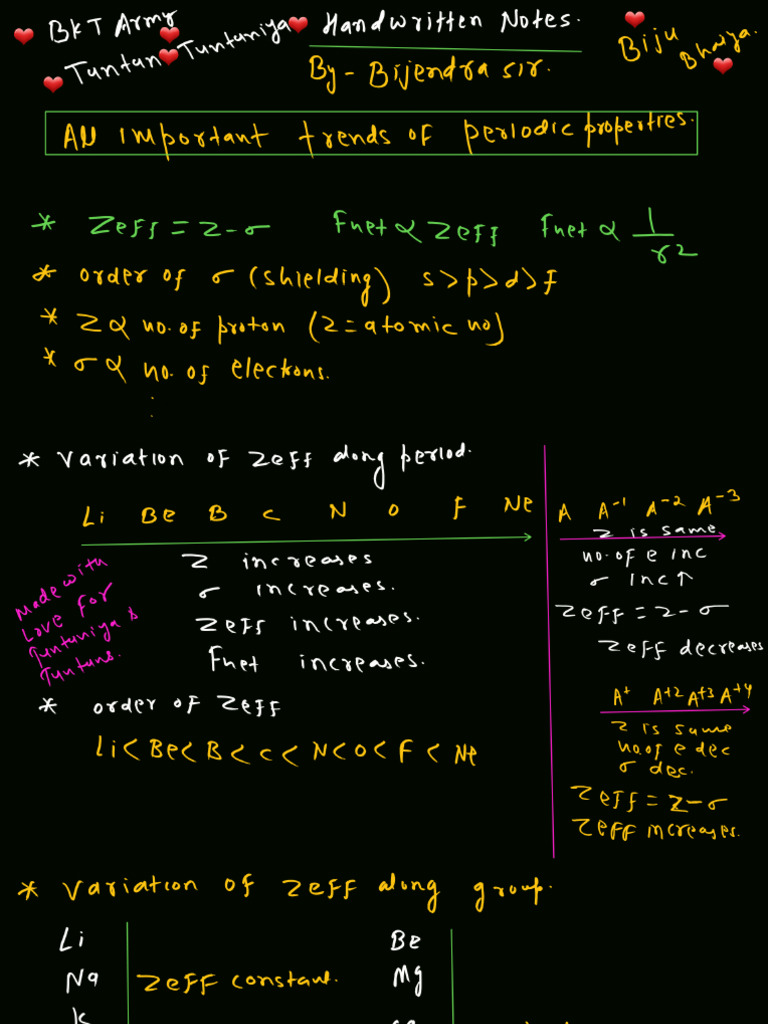 BKT Army
Tuntun Tuntuniya
Handwritten Notes.
By - Bijendra sir.
Biju Bhaiya.
All important trends of periodic properties.
* Zeff = Z - σ Fnet ∝ Zeff Fnet ∝ 1/r2
* order of σ (shielding) s>p>d>f
* Z ∝ no. of proton (Z = atomic no)
* σ ∝ no. of electrons.
* Variation of Zeff along period.
Li Be B C N O F Ne
Z increases
σ increases.
Zeff increases.
Fnet increases.
Made with
Love for
Tuntuniya &
Tuntuns.
* order of Zeff
Li < Be < B < C < N < O < F < Ne
A A-1 A-2 A-3
Z is same
no. of e inc
σ Inc ↑
Zeff = Z - σ
Zeff decreases
A+ A+2 A+3 A+4
Z is same
no. of e dec
σ dec.
Zeff = Z - σ
Zeff increases.
* Variation of Zeff along group.
Li
Na
K
Zeff constant.
Be
Mg